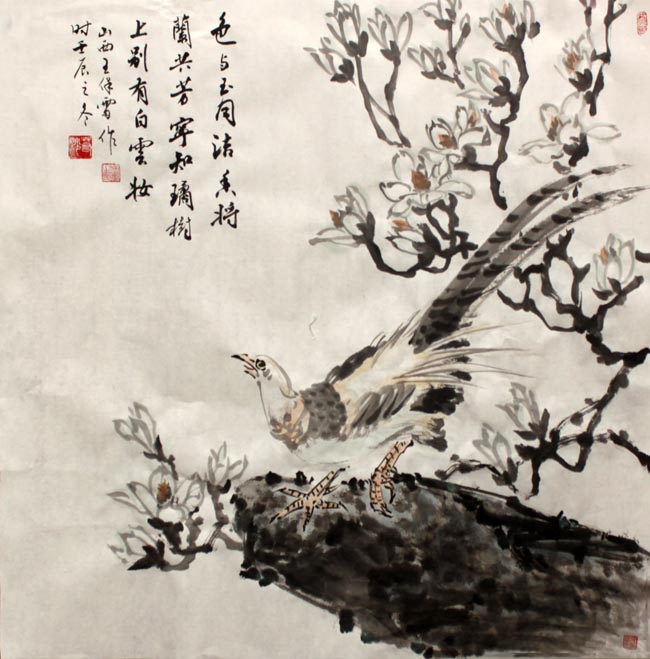 色与玉同洁香将
蘭共芳寧知璚樹
上别有白雲妆
山西王作
时壬辰之冬